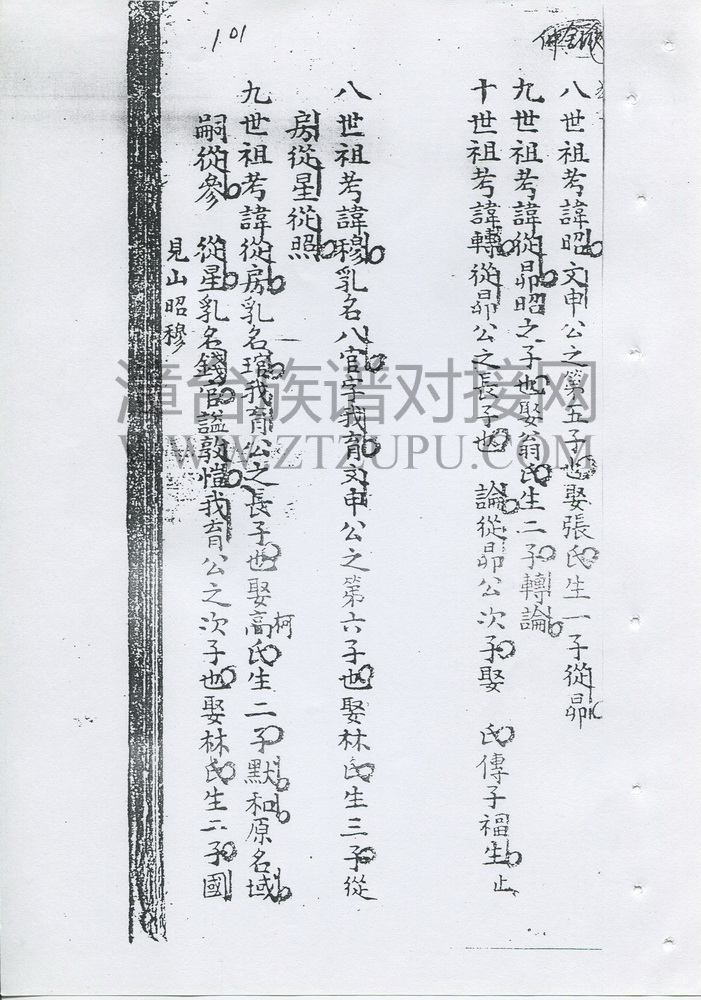 八世祖考諱昭文申公之第五子也娶張氏生一子從昴
九世祖考諱從昴昭之子也娶翁氏生二子轉論
十世祖考諱轉從昴公之長子也 論從昴公次子娶 氏傳子福生止
八世祖考諱穆乳名八官字我育文申公之第六子也娶林氏生三子從
房從星從照
九世祖考諱從房乳名琯我育公之長子也娶高氏生二子默和原名域
柯
嗣從參 從星乳名錢官謚敦愷我育公之次子也娶林氏生二子國
見山昭穆
101
漳台族谱对接网
WWW.ZTZUPU.COM